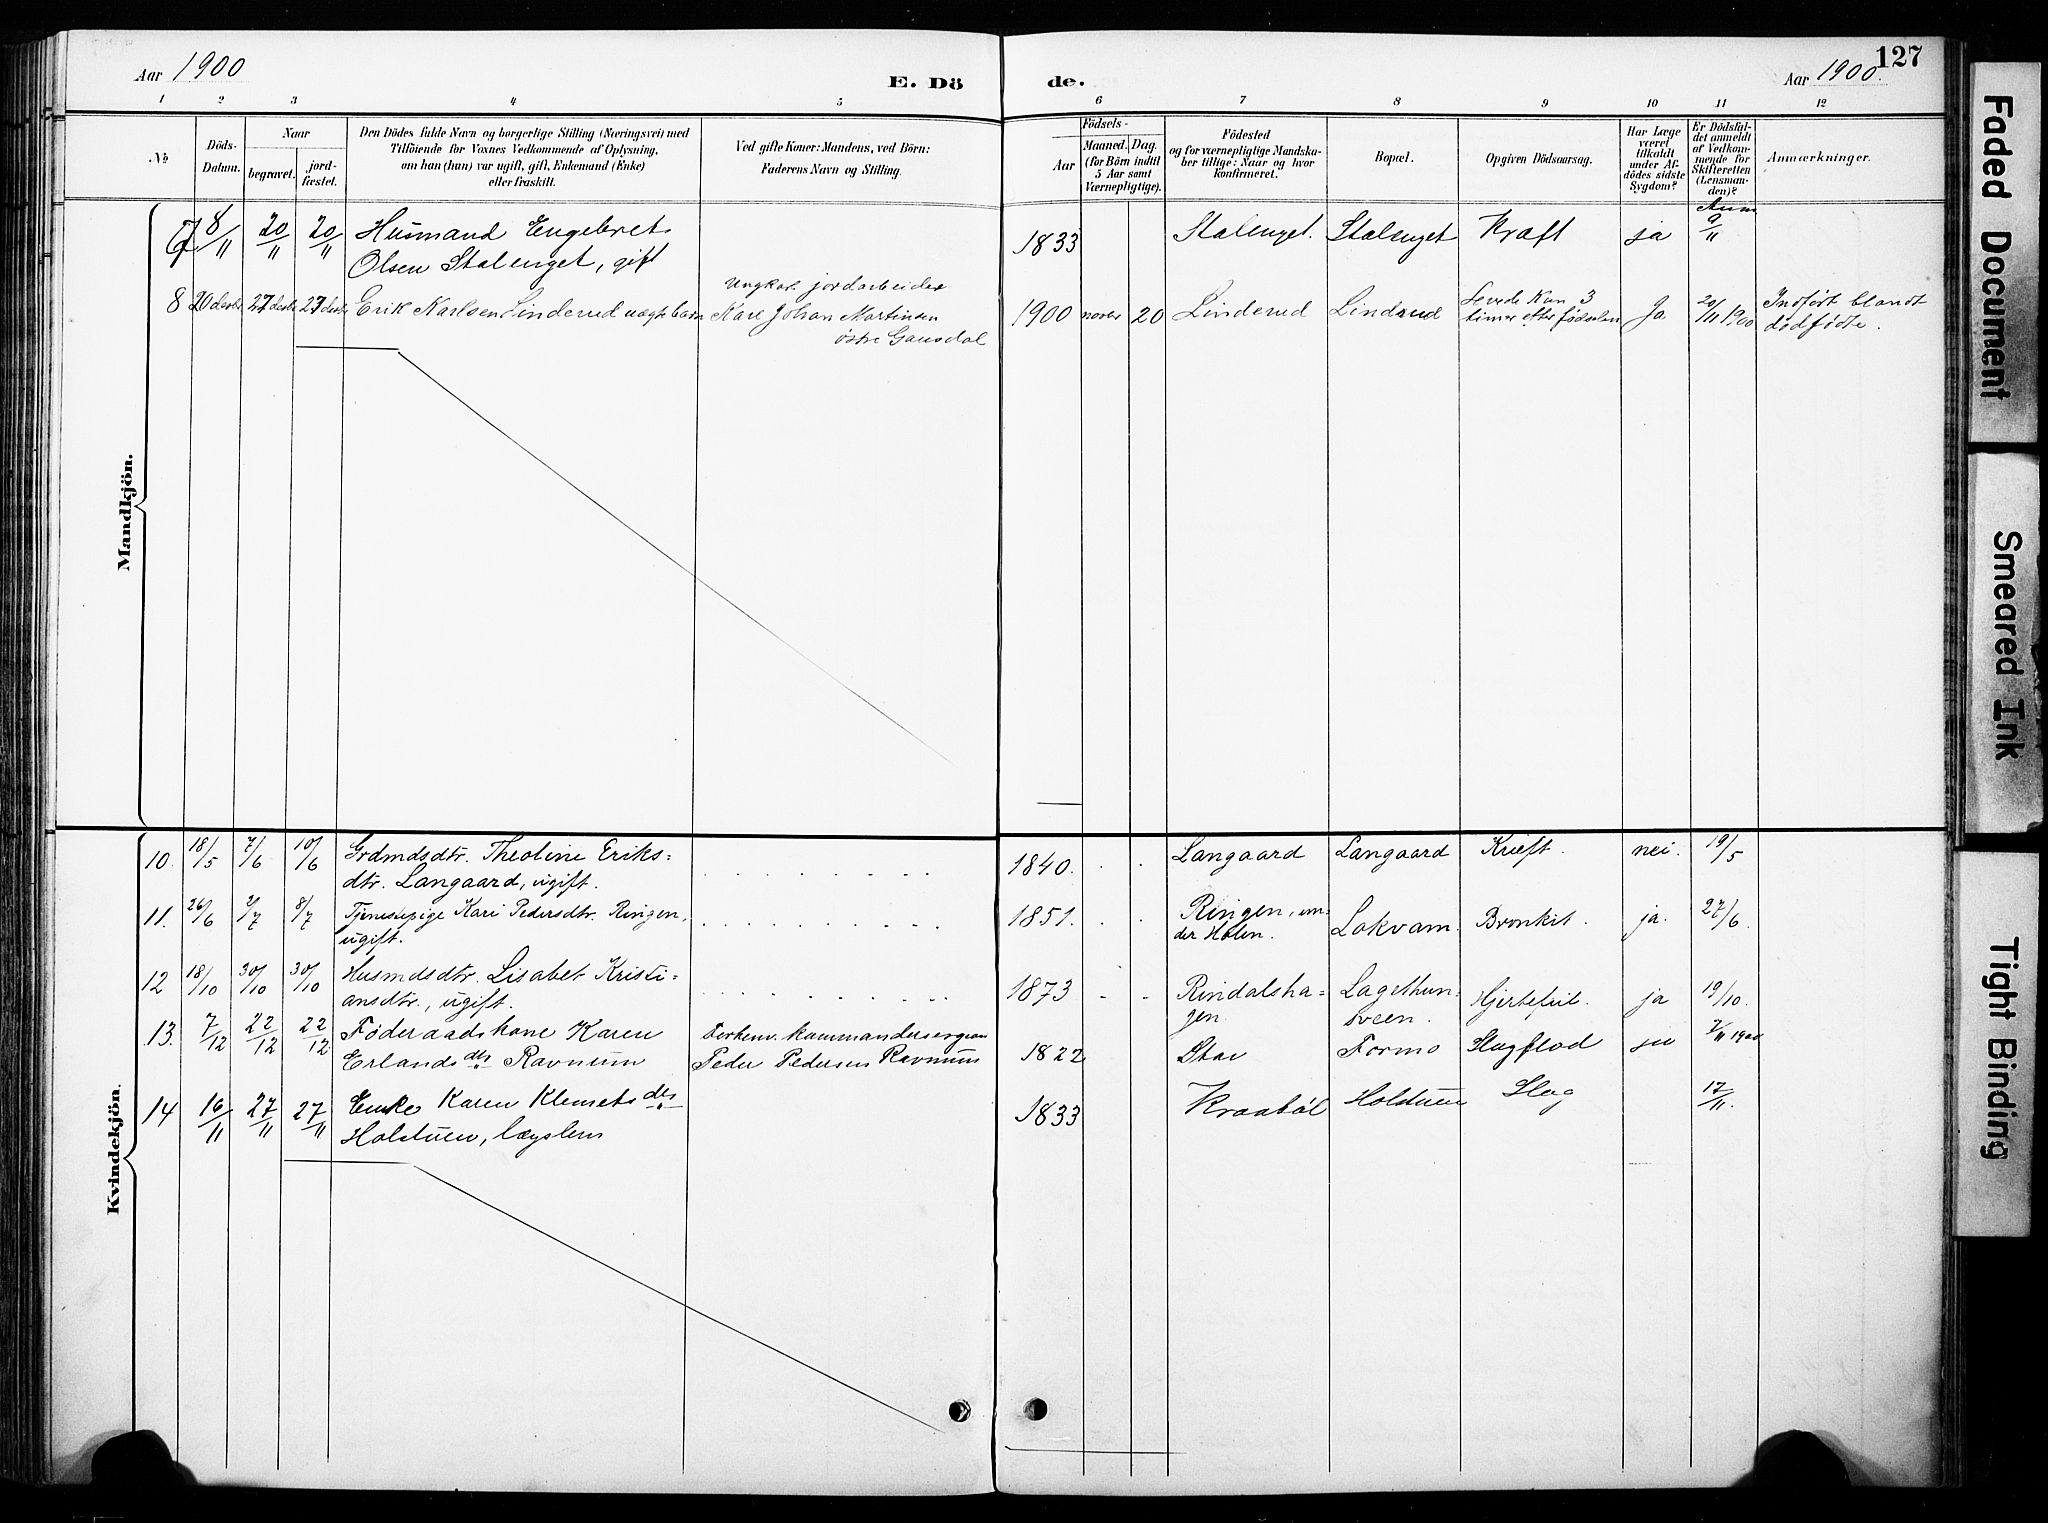 Aar 1900
E. Dö
de.
Aar 1900.
127
1 2 3 4 5 6 7 8 9 10 11 12
№
Döds-
Datum.
Naar
begravet.
jord-
fæstet.
Den Dödes fulde Navn og borgerlige Stilling (Næringsvei) med
Tilföiende for Voxnes Vedkommende af Oplysning,
om han (hun) var ugift, gift, Enkemand (Enke)
eller fraskilt.
Ved gifte Koner: Mandens, ved Börn:
Faderens Navn og Stilling.
Födsels-
Aar
Maaned. Dag.
(for Börn indtil
5 Aar samt
Værnepligtige).
Födested
og for værnepligtige Mandska-
ber tillige: Naar og hvor
konfirmeret.
Bopæl.
Opgiven Dödsaarsag.
Har Læge
været
tilkaldt
under Af-
dödes sidste
Sygdom?
Er Dödsfal-
det anmeldt
af Vedkom-
mende for
Skifteretten
(Lensman-
den)?
Anmærkninger.
Mandkjön.
7 8/11 20/11 20/11 Husmand Engebret
Olsen Stalenget, gift
1833 Stalenget. Stalenget Kraft ja Anm 9/11
8 20 27 27 Erik Karlsen Linderud
Ungkar jordarbeider
Karl Johan Martinsen
østre Gausdal
1900 novbr 20 Linderud Linderud Levede kun 3
timer efter fødselen Ja 20/11 1900 Indført blandt
dødfødte.
Kvindekjön.
10. 18/5 7/6 10/6 Grdmdsdtr. Theoline Eriks=
dtr. Langaard, ugift.
1840. Langaard Langaard Kræft. nei. 19/5
11. 26/6 2/7 8/7 Tjenestepige Kari Pedersdtr. Ringen,
ugift.
1851. Ringen, un-
der Holen. Lokvam. Bronkit. ja. 27/6.
12 18/10 30/10 30/10 Husmdsdtr. Lisabet Kristi=
ansdtr., ugift.
1873 Rindalsha-
gen. Lagethun-
sveen. Hjertefeil. ja 19/10.
13. 7/12 22/12 22/12 Føderaadskone Karen
Erlandsdtr Ravnum
Peder Pedersen Ravnum
1822 Stav Formo Slagflod ja 1900
14 16/11 27/11 27/11 Enke Karen Klemetsdtr
Holstuen, lægslem
1833 Kraabøl Holstuen Slag 17/11.
Faded Document
Smeared Ink
Tight Binding